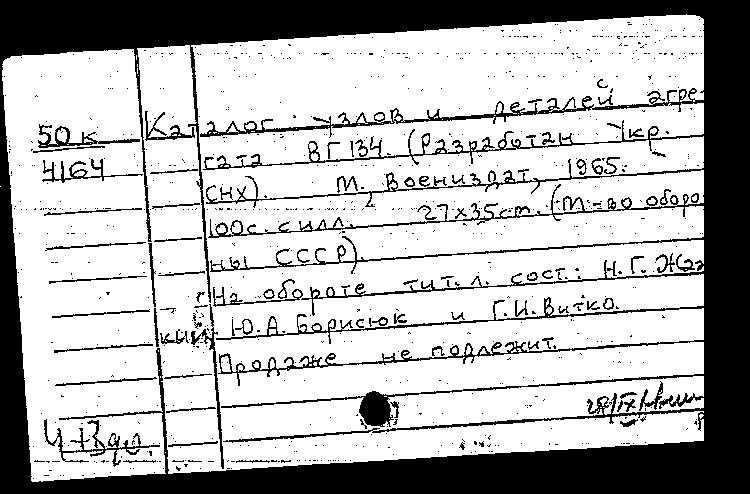 50к Каталог узлов и деталей агре-
4164 гата ВГ 134. (Разработан Укр.
СНХ). М., Воениздат, 1965.
100с. с илл. 27х35cm. (М-во оборо
ны СССР).
На обороте тит. л. сост.: Н.Г.
Ю.А. Борисюк и Г.И. Витко.
Продаже не подлежит.